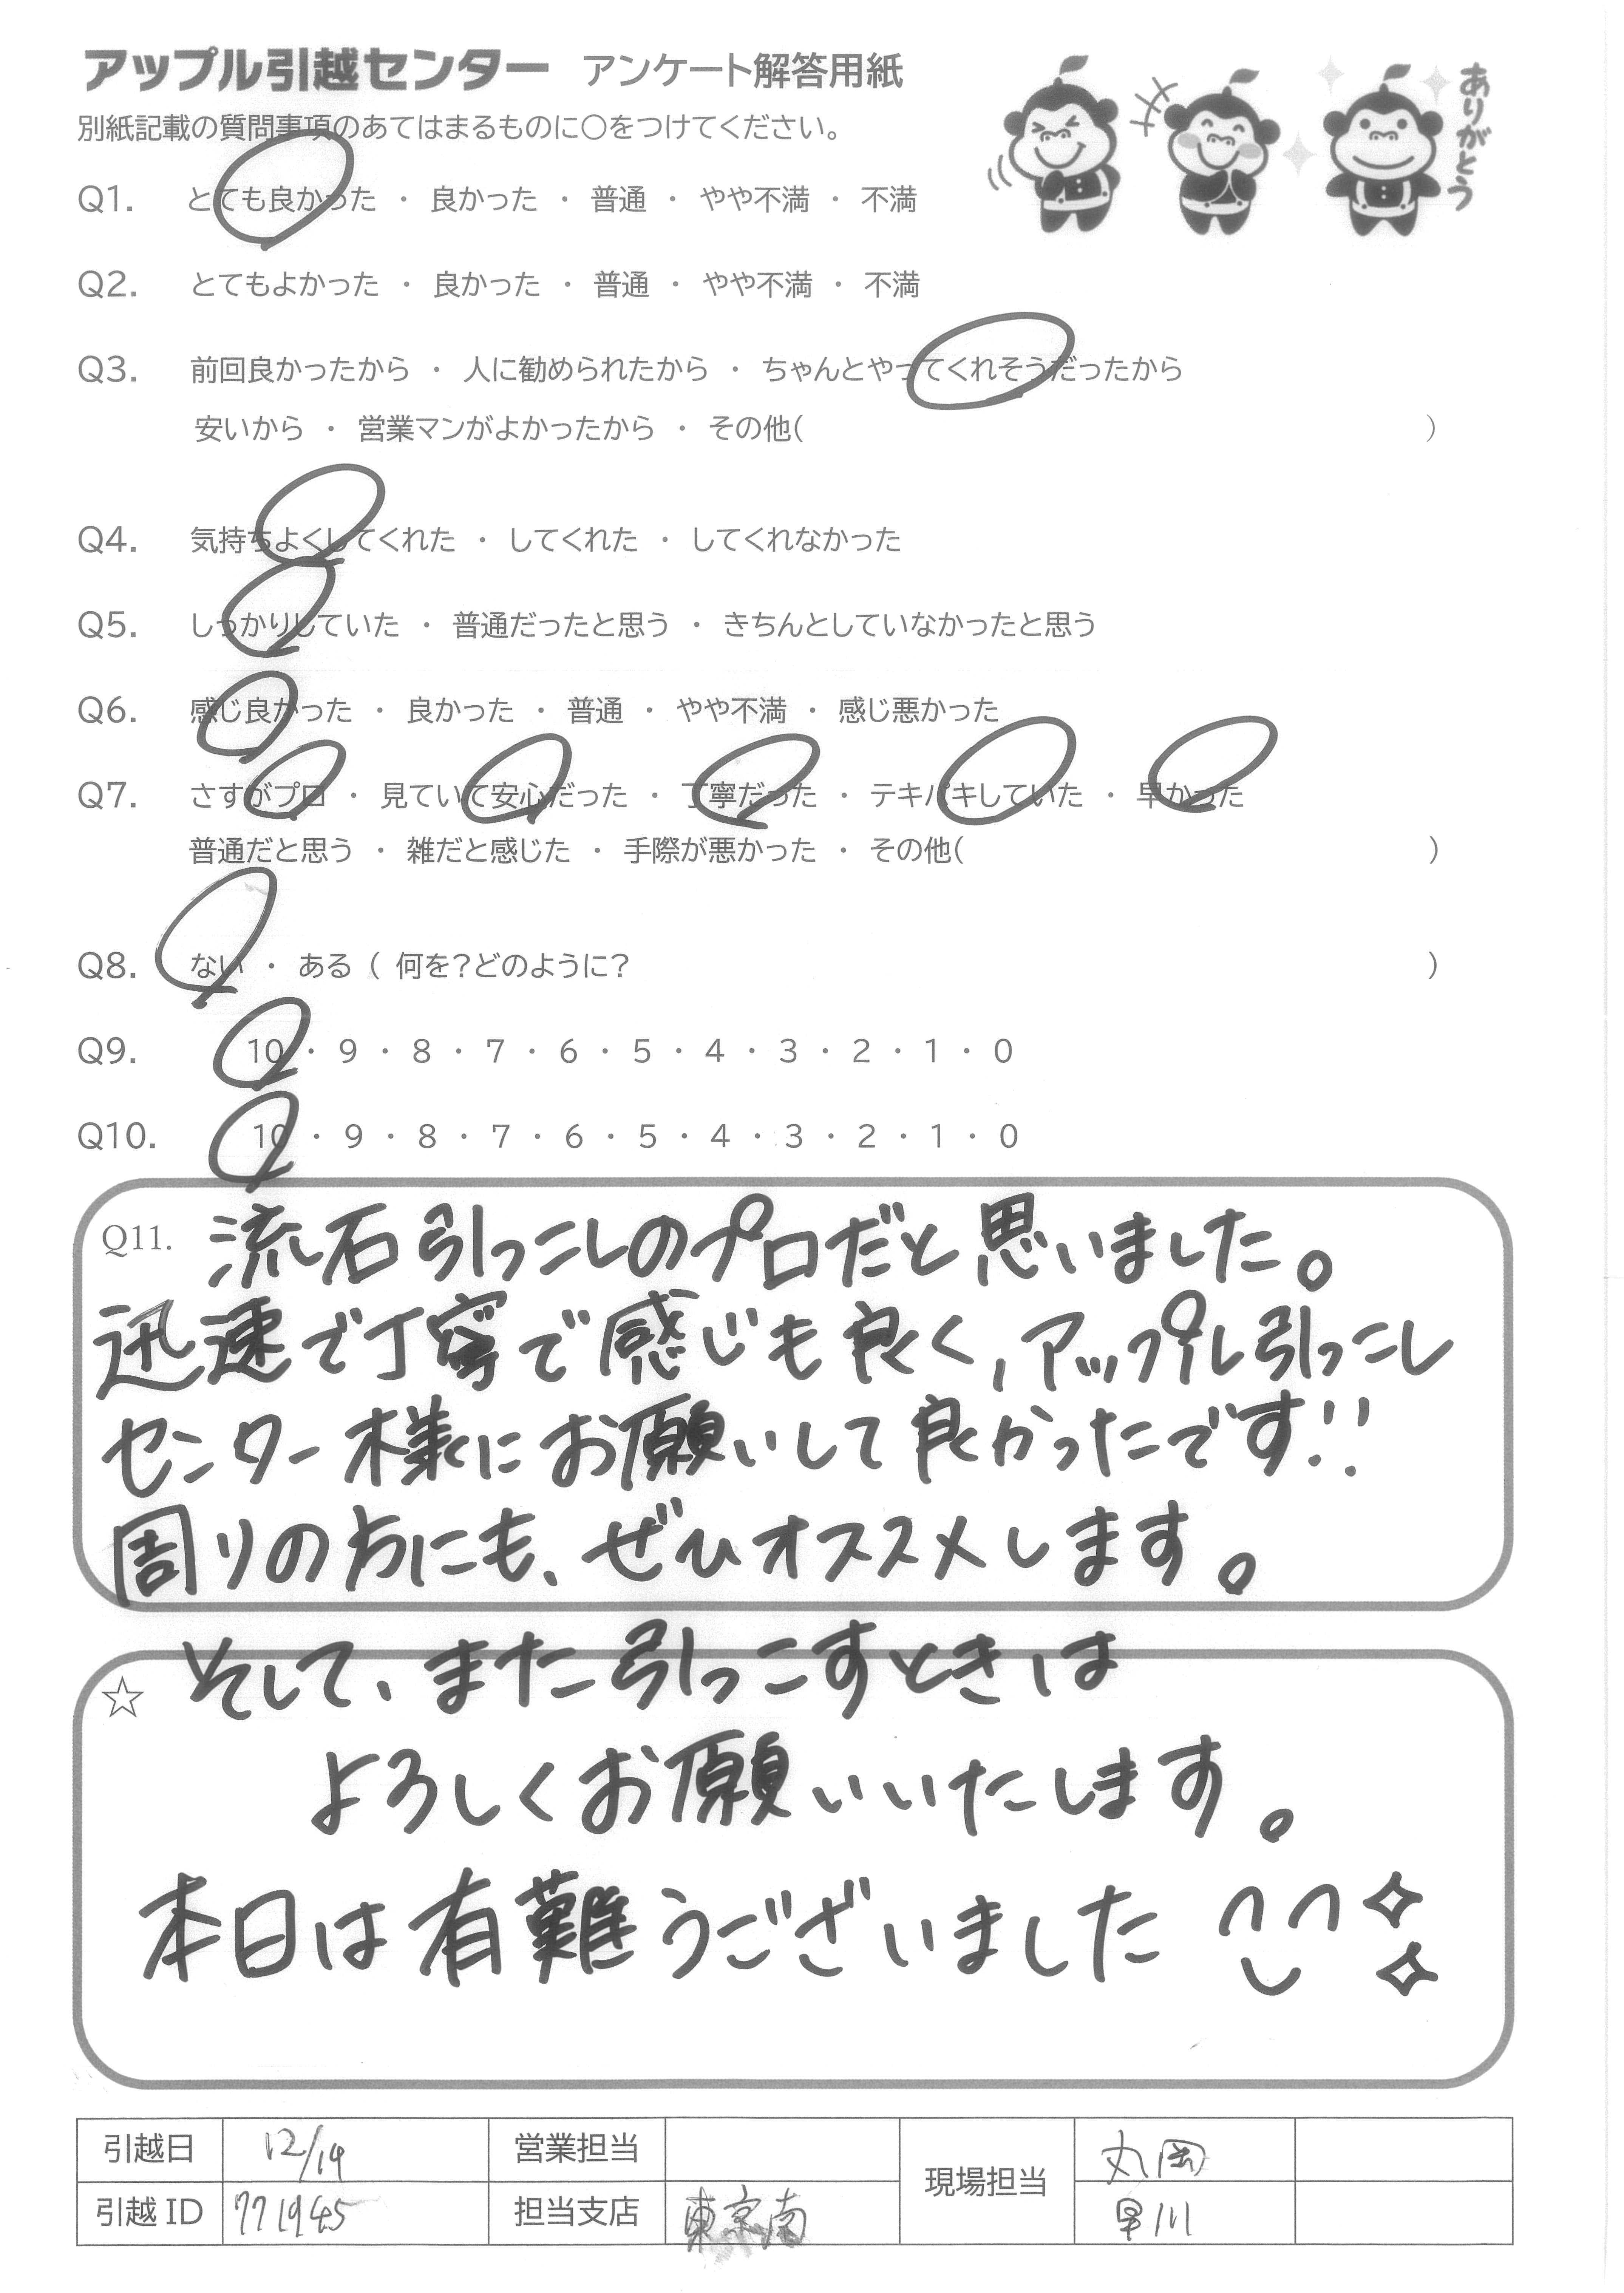 アップル引越センター アンケート解答用紙
ありがとう
別紙記載の質問事項のあてはまるものに○をつけてください。
Q1. とても良かった ・ 良かった ・ 普通 ・ やや不満 ・ 不満
Q2. とてもよかった ・ 良かった ・ 普通 ・ やや不満 ・ 不満
Q3. 前回良かったから ・ 人に勧められたから ・ ちゃんとやってくれそうだったから
安いから ・ 営業マンがよかったから ・ その他( )
Q4. 気持ちよくしてくれた ・ してくれた ・ してくれなかった
Q5. しっかりしていた ・ 普通だったと思う ・ きちんとしていなかったと思う
Q6. 感じ良かった ・ 良かった ・ 普通 ・ やや不満 ・ 感じ悪かった
Q7. さすがプロ ・ 見ていて安心だった ・ 丁寧だった ・ テキパキしていた ・ 早かった
普通だと思う ・ 雑だと感じた ・ 手際が悪かった ・ その他( )
Q8. ない ・ ある ( 何を?どのように? )
Q9. 10 ・ 9 ・ 8 ・ 7 ・ 6 ・ 5 ・ 4 ・ 3 ・ 2 ・ 1 ・ 0
Q10. 10 ・ 9 ・ 8 ・ 7 ・ 6 ・ 5 ・ 4 ・ 3 ・ 2 ・ 1 ・ 0
Q11. 流石引っこしのプロだと思いました。
迅速で丁寧で感じも良く、アップル引っこし
センター様にお願いして良かったです!!
周りの方にも、ぜひオススメします。
☆ そして、また引っこすときは
よろしくお願いいたします。
本日は有難うございました
引越日 12/19 営業担当 現場担当 丸岡
引越ID 771945 担当支店 東京南 早川